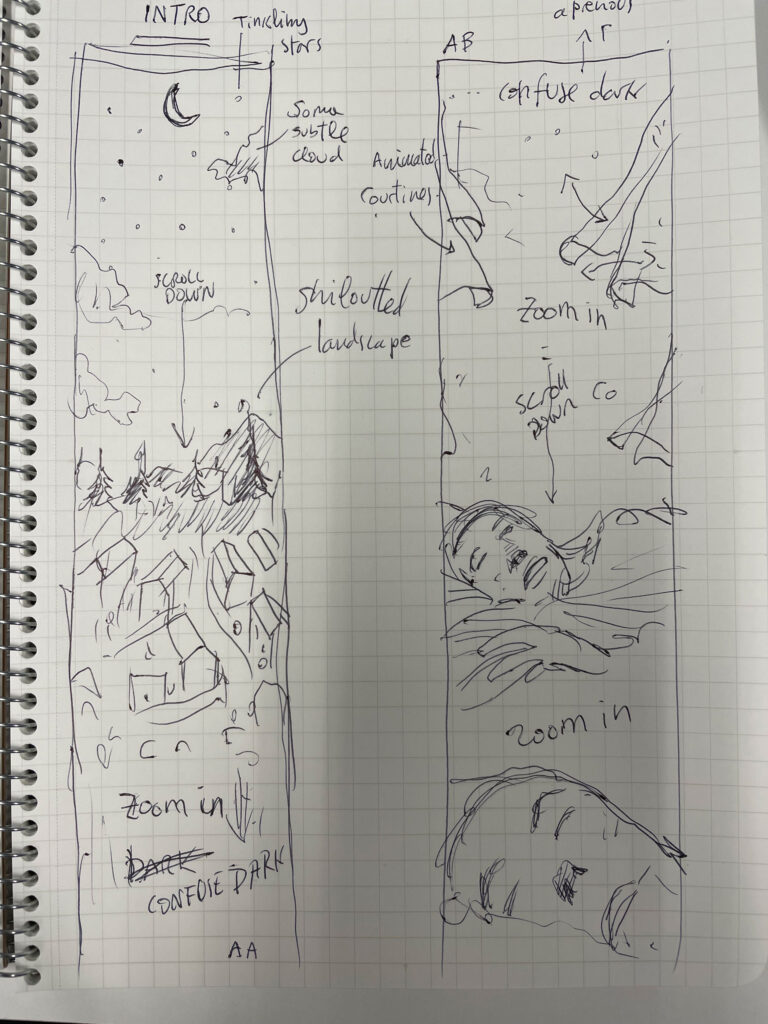 INTRO
Tinckling
stars
Some
subtle
cloud
SCROLL
DOWN
Shiloutted
landscape
Zoom in
DARK
CONFUSE DARK
AA
AB
confuse dark
Animated
Courtines
Zoom in
scroll
down
Co
Zoom in